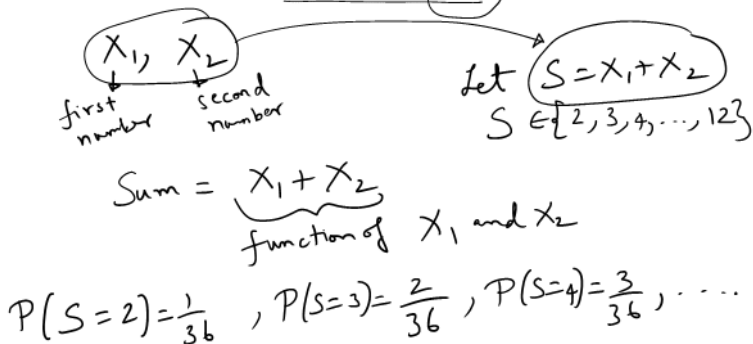 X₁, X₂
first number
second number
Let S = X₁ + X₂
S ∈ {2, 3, 4, ..., 12}
Sum = X₁ + X₂
function of X₁ and X₂
P(S=2) = 1/36 , P(S=3) = 2/36 , P(S=4) = 3/36 , ....